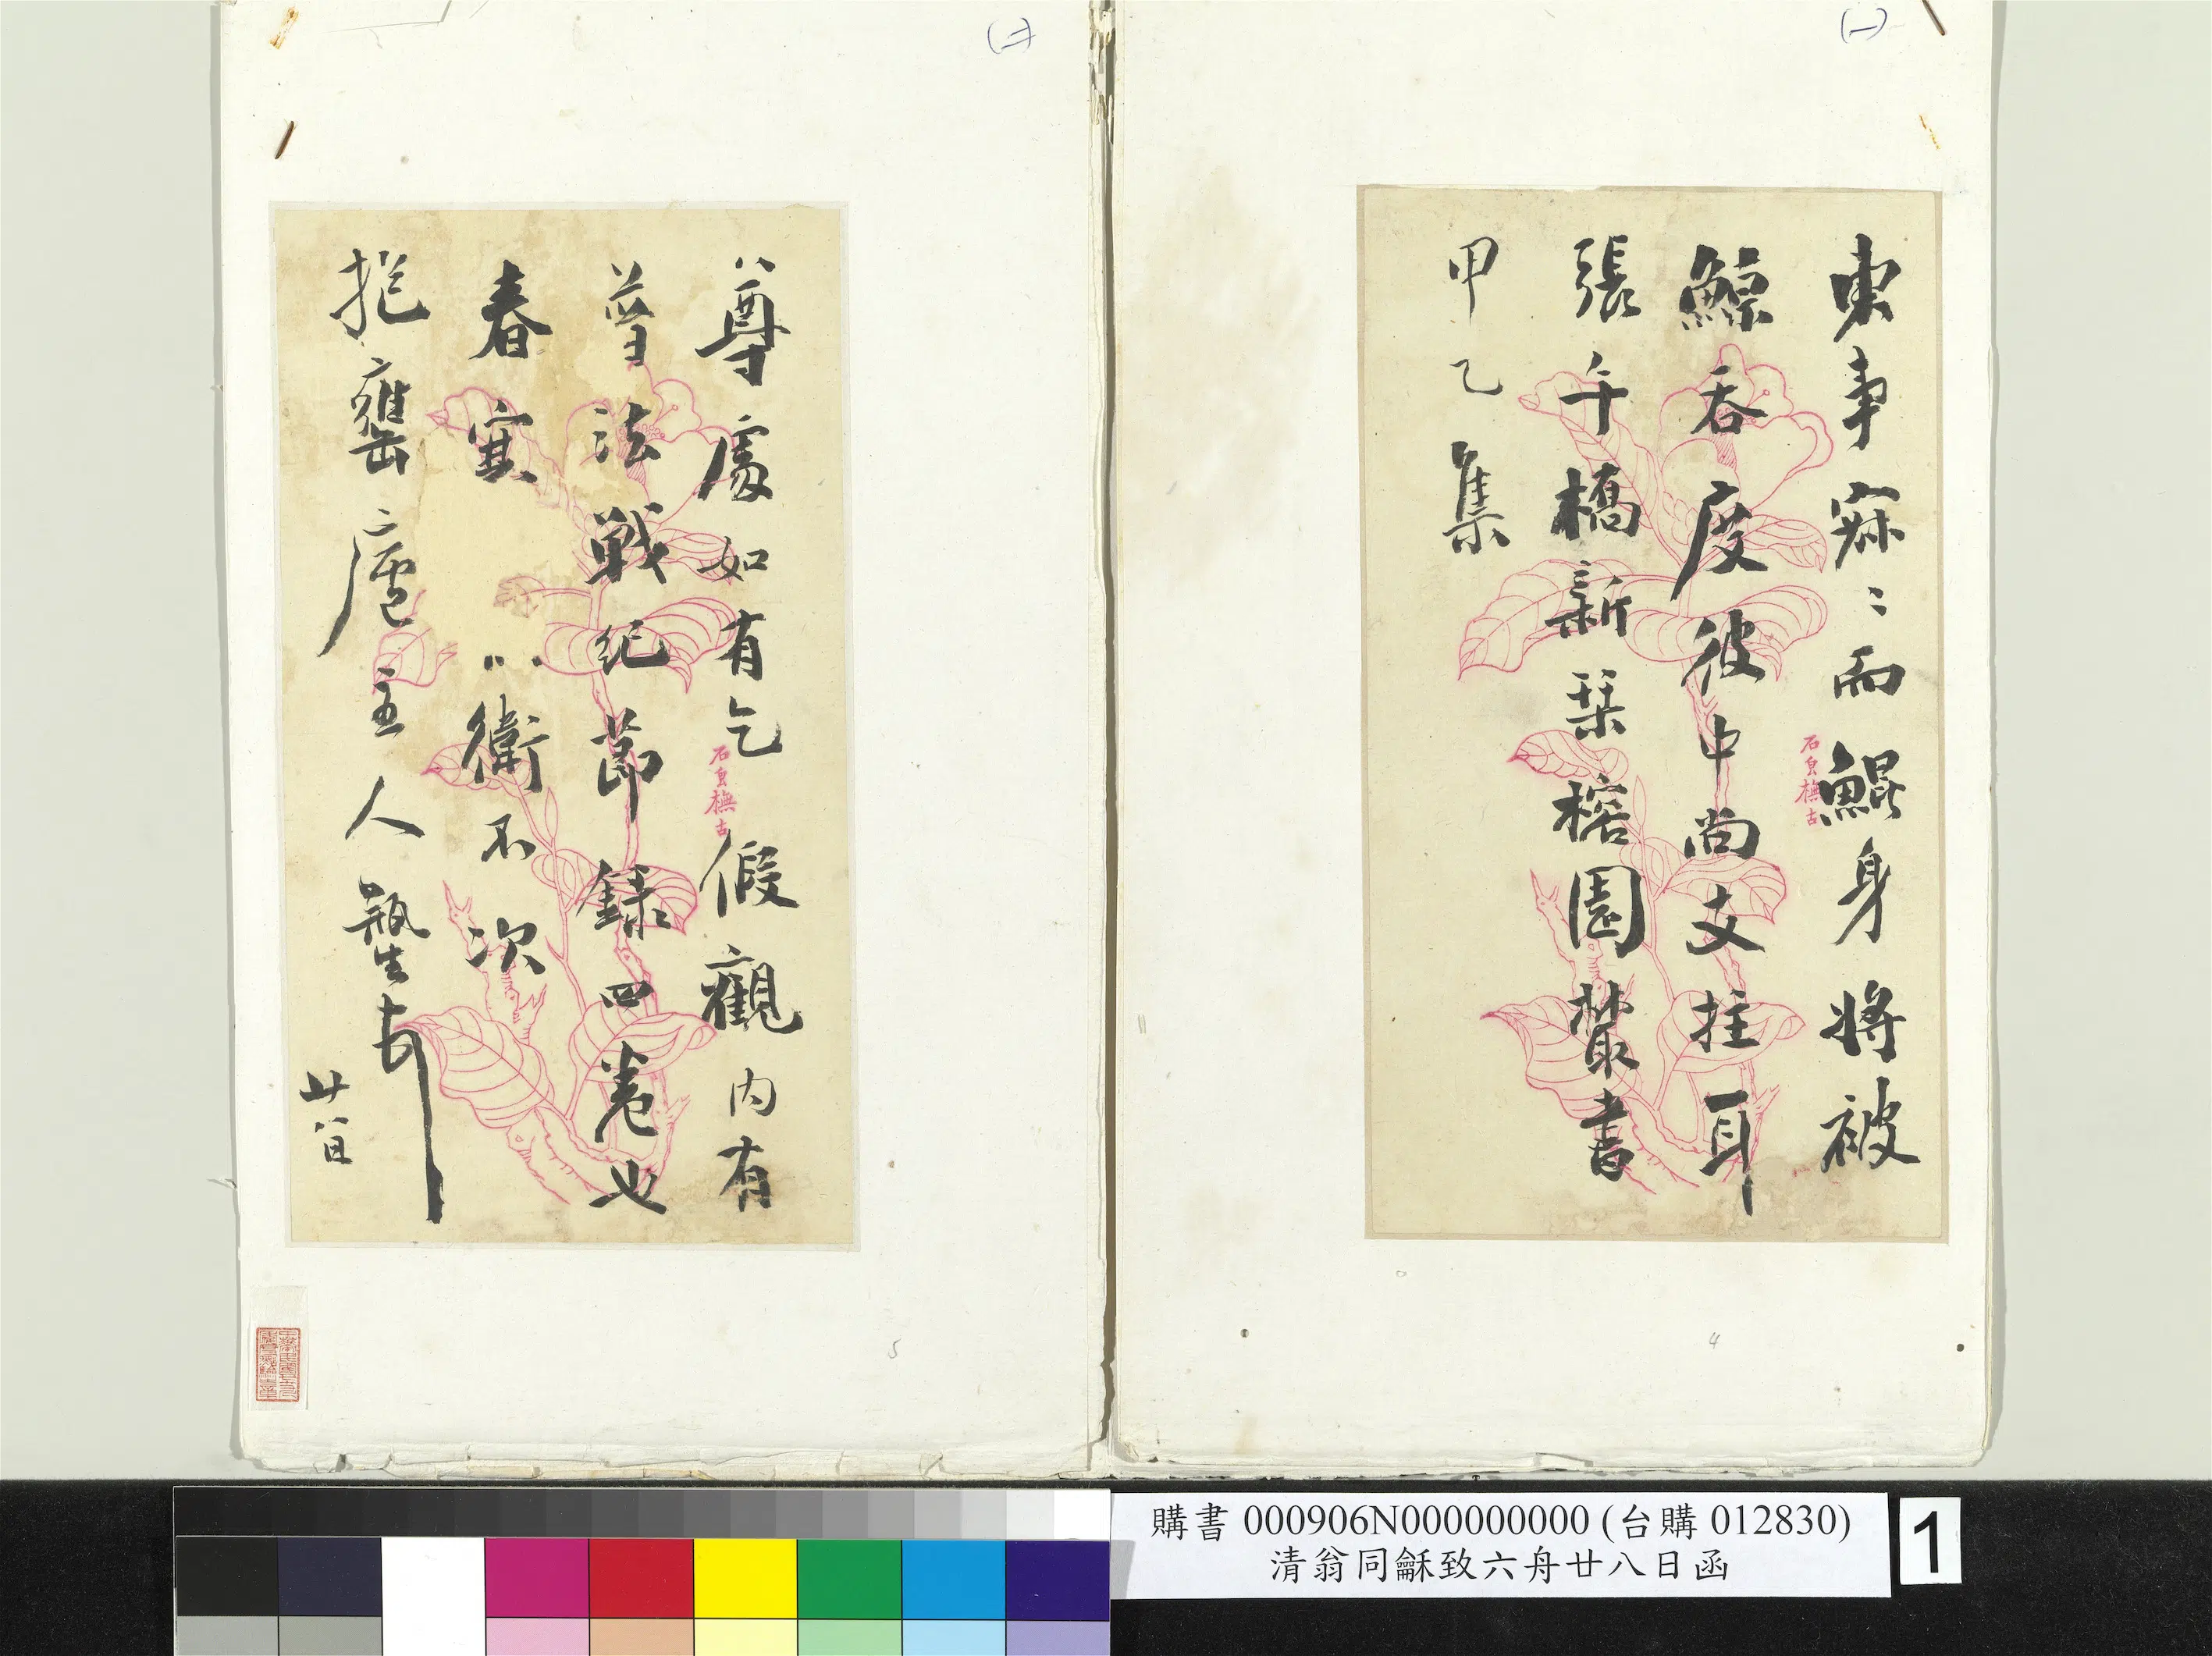 (一)
東事寐〻而鯤身將被
鯨吞度彼中尚支拄耳
張午橋新栞榕園叢書
甲乙集
橅古
4
(二)
尊處如有乞假觀內有
普法戰紀節錄四卷也
春寒 衛不次
抱罋廬主人 缾生
廿八日
橅古
5
購書 000906N000000000 (台購 012830)
清翁同龢致六舟廿八日函
1